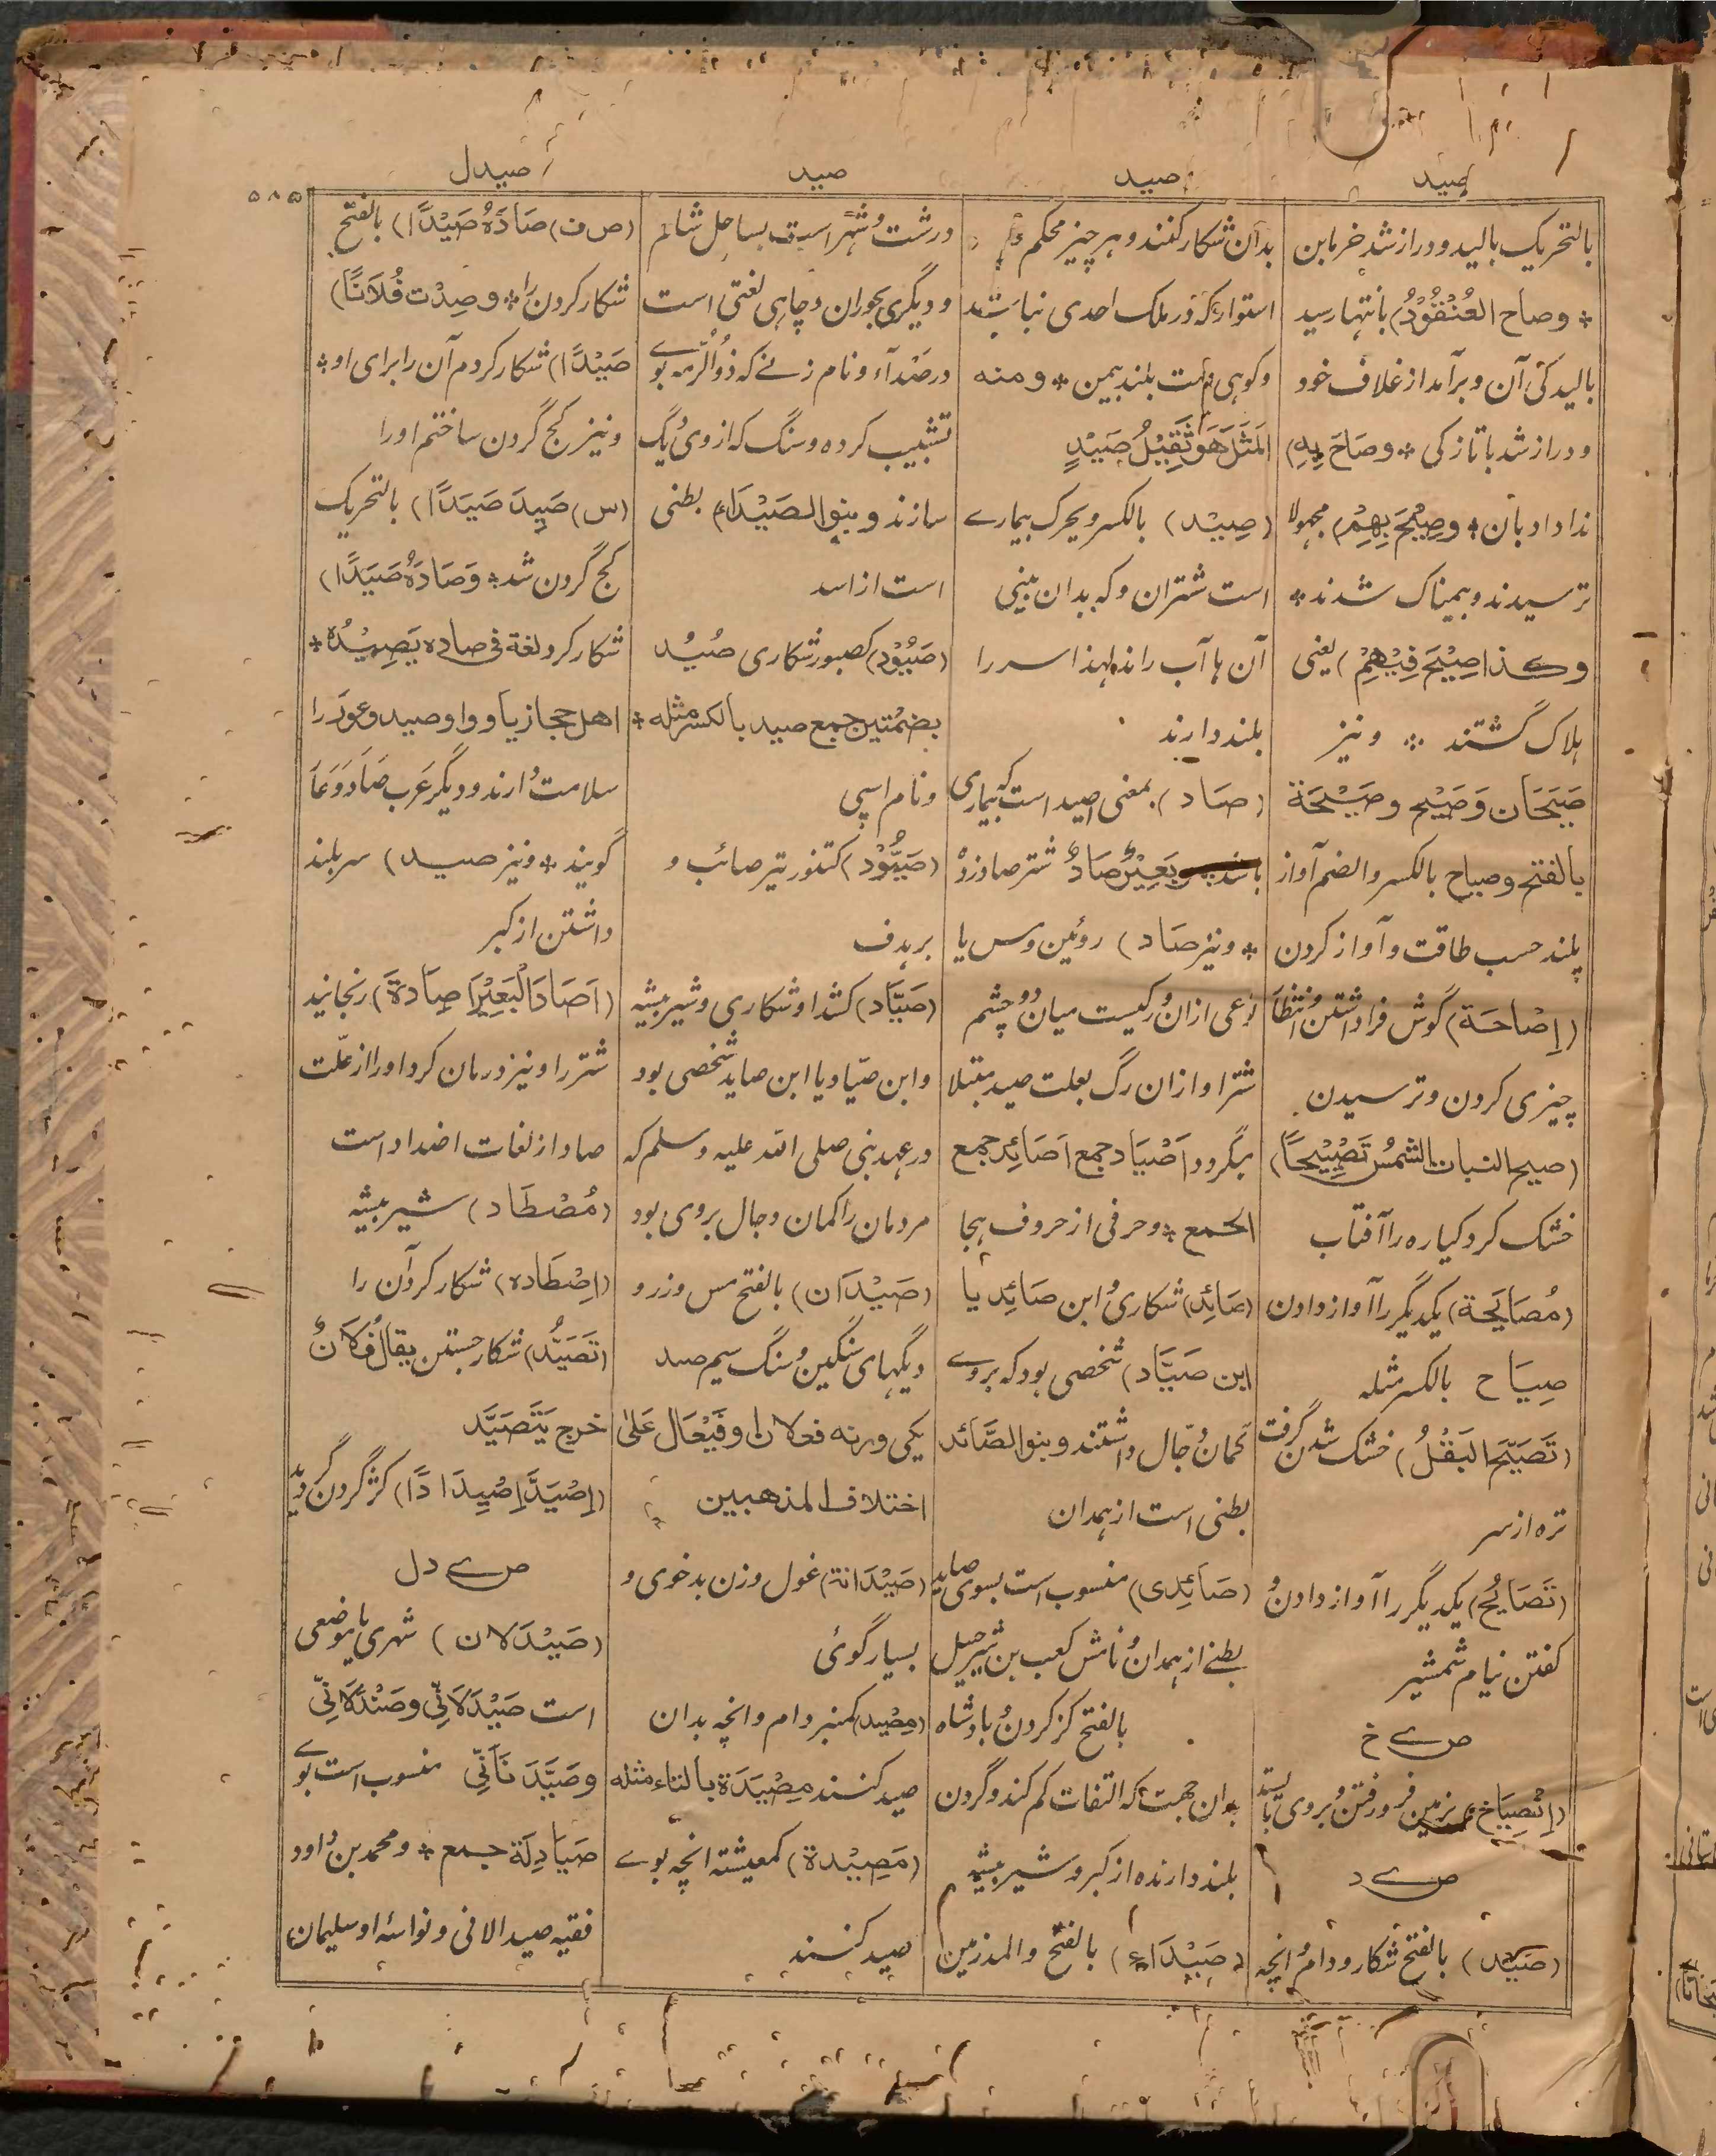 صید
صید
صید
صیدل
۵۸۵
بالتحریک بالید و دراز شد خرما بن
* وصاح العُنْقُوْدُ) بانتها رسید
بالیدگی آن و برآمد از غلاف خود
و دراز شد با تازگی * وصَاحَ بِهِ)
ندا داد بآن * وصِیْحَ بِهِمْ) مجهولا
ترسیدند و بیمناک شدند *
وکذا صِیْحَ فِیْهِمْ) یعنی
ہلاک گشتند * ونیز
صَیَحَان وَصَیْح وصَیْحَة
بالفتح وصیاح بالکسر والضم آواز
بلند حسب طاقت وآواز کردن
(اِصَاحَة) گوش فرا داشتن و انتظار
چیزی کردن وترسیدن
(صیح النبات الشمسُ تَصْیِیْحًا)
خشک کرد گیاه را آفتاب
(مُصَایَحَة) یکدیگر را آواز دادن
صِیَاح بالکسر مثله
(تَصَیَّحَ البَقْلُ) خشک شدن گرفت
تره از سر
(تَصَایُح) یکدیگر را آواز دادن و
کفتن نیام شمشیر
ص ے خ
(اِنْصِیَاخ) بزمین فرو رفتن و بروی
ص ے د
(صَیْد) بالفتح شکار و دام و انچه
بدان شکار کنند و هر چیز محکم و
استوار که در ملک احدی نباشد
وکوهی است بلند بیمن * ومنه
المَثَل هَوَ ثَقِیْلُ صَیْدٍ
(صِیْد) بالکسر ویحرک بیمارے
است شتران را که بدان بینی
آن ہا آب راند لهذا سر را
بلند دارند
(صَاد) بمعنی صید است که بیماری
باشد بَعِیْرٌ صَادٌ شتر صاد زده
* ونیز صَاد) روئین ومس یا
نوعی از ان ورگیست میان دو چشم
شتر او از ان رگ بعلت صید مبتلا
میگردد اَصْیَاد جمع اَصَائِد جمع
الجمع * وحرفی از حروف ہجا
(صَائِد) شکاری و ابن صَائِد یا
ابن صَیَّاد) شخصی بود که بروے
گمان دجّال داشتند وبنو الصَّائد
بطنی است از ہمدان
(صَائِدی) منسوب است بسوی صاید
بطنے از ہمدان و نامش کعب بن شرحبیل
بالفتح کژ گردن و بادشاه
بدان جهت که التفات کم کند وگردن
بلند دارنده از کبر و شیر بیشه
(صَیْدَاء) بالفتح والمد زمین
درشت و شہراست بساحل شام
و دیگری بحوران وچاہی لغتی است
در ضدآء و نام زنے که ذوالرمه بوے
تشبیب کرده وسنگ که از وی دیگ
سازند وبنو الصَیْدَاء) بطنی
است از اسد
(صَیُوْد) کصبور شکاری صُیُد
بضمتین جمع صید بالکسر مثله *
ونام اسپی
(صَیُّوْد) کتنور تیر صائب و
بر ہدف
(صَیَّاد) کشداد شکاری وشیر بیشه
وابن صیّاد یا ابن صاید شخصی بود
در عہد نبی صلی الله علیه وسلم که
مردمان را گمان دجال بروی بود
(صَیْدَان) بالفتح مس وزر و
دیگہای سنگین و سنگ سیم صید
یکی ورنه فعلان او فَیْعَال عَلیٰ
اختلاف المذهبین
(صَیْدَانة) غول وزن بدخوی و
بسیار گوئی
(مِصْیَد) کمنبر دام وانچه بدان
صید کنند مِصْیَدَة بالتاء مثله
(مَصِیْدة) کمعیشته انچه بوے
صید کنند
(ص ف) صَادَهُ صَیْدًا) بالفتح
شکار کردن را * وصِدْت فُلَانًا)
صَیْدًا) شکار کردم آن را برای او *
ونیز کج گردن ساختم او را
(س) صَیِدَ صَیَدًا) بالتحریک
کج گردن شد * وَصَادَهُ صَیَدًا)
شکار کرد لغة فی صاده یَصِیْدُه *
اهل حجاز یا و واو صید وعور را
سلامت دارند ودیگر عرب صَادَ وَعَارَ
گویند * ونیز صید) سر بلند
داشتن از کبر
(اَصَادَ البَعِیْرَ اصَادَةً) رنجانید
شتر را ونیز درمان کرد او را از علّت
صاد از لغات اضداد است
(مُصْطَاد) شیر بیشه
(اِصْطَاده) شکار کرد آن را
(تَصَیُّد) شکار جستن یقال فُلَانٌ
خرج یَتَصَیَّد
(اِصْیَدَّ اِصْیِدَادًا) کژ گردن گردید
ص ے دل
(صَیْدَلان) شہری یا موضعی
است صَیْدَلَانِیّ وصَنْدَلَانِیّ
وصَیْدَ نَانِیّ منسوب است بوے
صَیَادِلَة جمع * ومحمد بن داود
فقیه صید الانی ونواسۀ او سلیمان